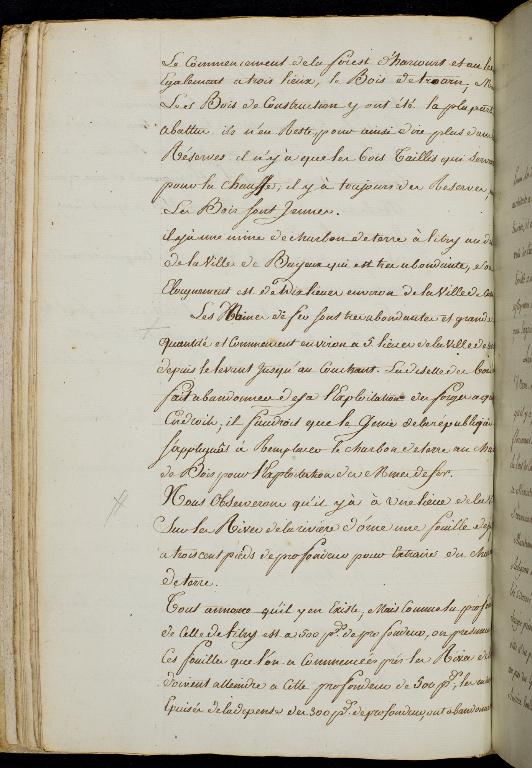 Le Commencement de la forest d'harcourt et au les
Egalement a trois lieux, le Bois de troarn,
Les Bois de Construction y ont été la plus part
abattu ils n'en Reste, pour ainsi dire plus dans
Réserves il n'y a que les bois Taillis qui servent
pour la chauffe, il y à toujours des Reserves,
Les Bois sont Jeunes.
il y a une mine de charbon de terre à litry au d
de la Ville de Bayeux qui est tres abondante, son
Eloignement est de trois lieues environ de la Ville de
Les Mines de fer sont tres abondantes et grande
quantité et Commencent environ a 5 lieues de la Ville de
depuis le levant Jusqu'au Couchant. La disette de bois
fait abandonner deja l'Exploitation des forges a
Endroits, il faudroit que le Genie de la républiq
s'appliquat à Remplacer le charbon de terre au char
de Bois pour l'Exploitation des Mines de fer.
Nous Observerons qu'il y a à une lieue de la V
Sur les Rives de la riviere d'orne une fouille de
a trois cent pieds de profondeur pour Extraire du char
de terre.
Tout annonce qu'il y en Existe, Mais Comme la profon
de Celle de litry est a 500 pds. de profondeur, on presume
Ces fouilles que l'on a Commencées près les Rives de
doivent atteindre a Cette profondeur de 500 pds, les
Epuisés de la depense des 300 pds. de profondeur, ont abandonné